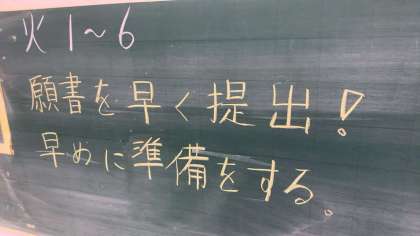 火 1～6
願書を早く提出!
早めに準備をする。